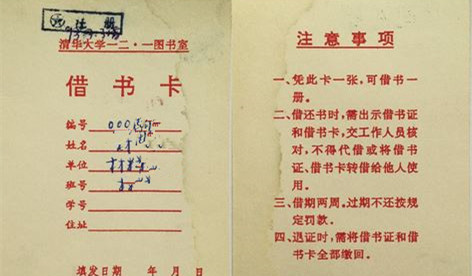 注册
清华大学一二·一图书室
借书卡
编号 000
姓名
单位
班号
学号
住址
填发日期 年 月 日
注意事项
一、凭此卡一张,可借书一
册。
二、借还书时,需出示借书证
和借书卡,交工作人员核
对,不得代借或将借书
证、借书卡转借给他人使
用。
三、借期两周。过期不还按规
定罚款。
四、退证时,需将借书证和借
书卡全部缴回。